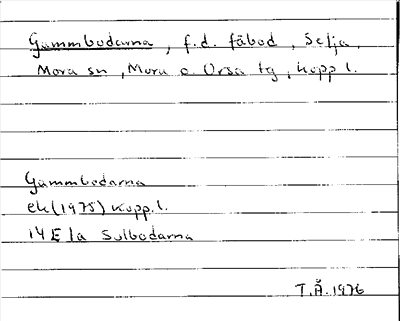 Gammbodarna, f.d. fäbod, Selja,
Mora sn, Mora o Orsa tg, Kopp l.
Gammbodarna
ek (1975) Kopp. l.
14 E 1a Sulbodarna
T.Å. 1976